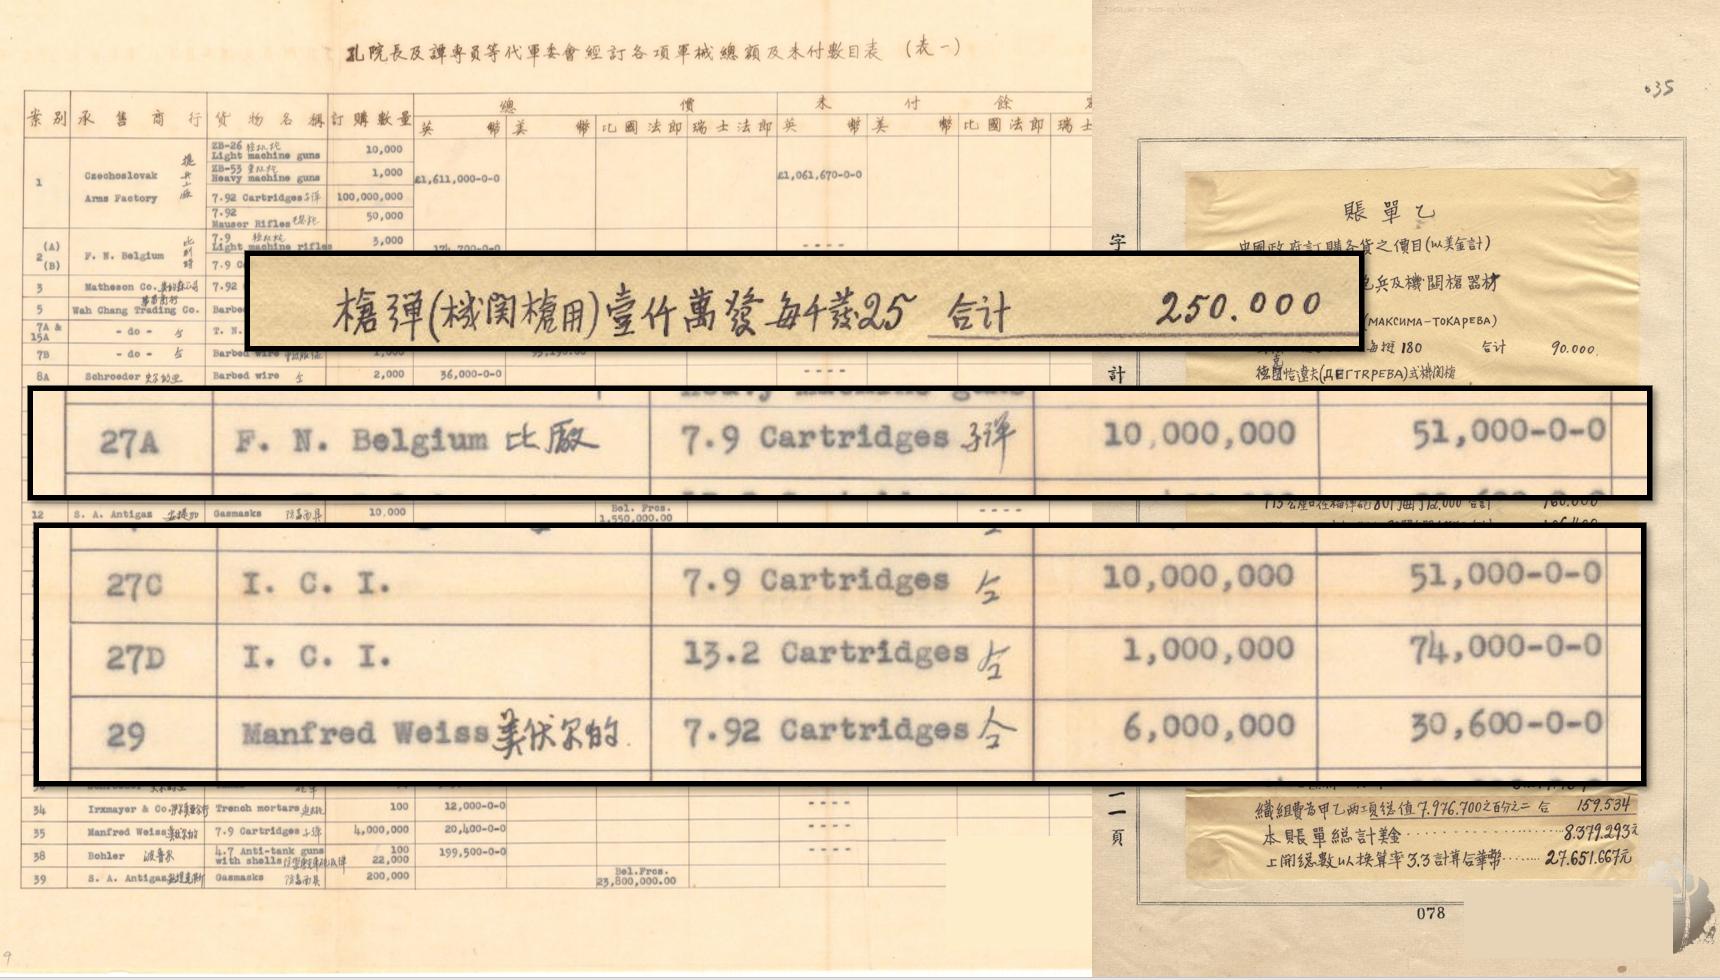 孔院長及譚專員等代軍委會經訂各項軍械總額及未付數目表 (表一)
案別 承售商行 貨物名稱 訂購數量 總價 未付餘
英幣 美幣 比國法郎 瑞士法郎 英幣 美幣 比國法郎 瑞士
1 Czechoslovak Arms Factory 捷兵工廠
ZB-26 輕机枪 Light machine guns 10,000
ZB-53 重机枪 Heavy machine guns 1,000 £1,611,000-0-0 £1,061,670-0-0
7.92 Cartridges 子弹 100,000,000
7.92 Mauser Rifles 50,000
(A) 2 (B) F. N. Belgium 7.9 Light machine rifles 3,000 ----
7.9
3 Matheson Co. 7.92
5 Wah Chang Trading Co. Barbed
7A & 15A - do - T. N.
7B - do - Barbed wire 1,000
8A Schroeder Barbed wire 仝 2,000 36,000-0-0 ----
槍彈(機関槍用)壹仟萬發每千發25 合计 250.000
27A F. N. Belgium 比廠 7.9 Cartridges 子彈 10,000,000 51,000-0-0
12 S. A. Antigaz Gasmasks 防毒面具 10,000 Bel. Frcs. 1,550,000.00 ----
27C I. C. I. 7.9 Cartridges 仝 10,000,000 51,000-0-0
27D I. C. I. 13.2 Cartridges 仝 1,000,000 74,000-0-0
29 Manfred Weiss 7.92 Cartridges 仝 6,000,000 30,600-0-0
34 Irxmayer & Co. Trench mortars 100 12,000-0-0 ----
35 Manfred Weiss 7.9 Cartridges 子彈 4,000,000 20,400-0-0 ----
38 Bohler 4.7 Anti-tank guns with shells 100 22,000 199,500-0-0 ----
39 S. A. Antigaz Gasmasks 防毒面具 200,000 Bel.Frcs. 23,800,000.00
9
035
字
計
二
一
頁
賬單乙
中國政府訂購各貨之價目(以美金計)
兵及機關槍器材
(МАКСИМА-ТОКАРЕВА)
每挺180 合计 90.000.
式機関槍
合计 160.000
織組費為甲乙兩項送值7.976.700之百分之二 合 159.534
本賬單總計美金 8.379.293元
上開總數以換算率3.3計算合華幣 27.651.667元
078